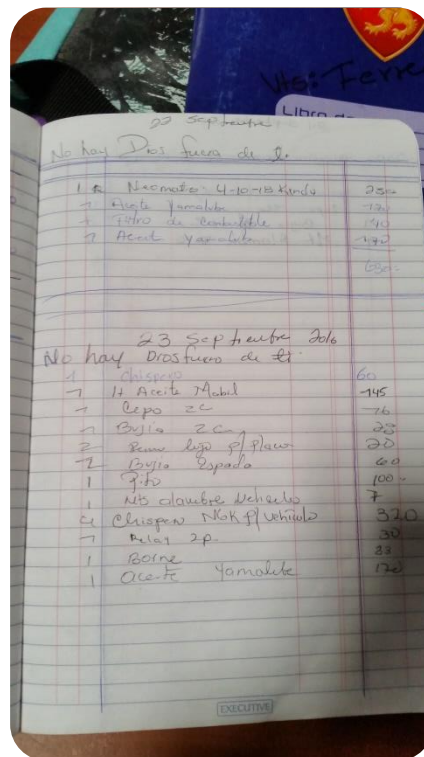 Vts: Ferre
Libro de
22 Septiembre
No hay Dios fuera de ti.
1 Neomato 4-10-18 Kenda
1 Aceite Yamalube 170
1 Filtro de combustible 140
1 Aceit Yamalube 170
680
23 Septiembre 2016
No hay Dios fuera de ti.
1 chispero 60
1 lt Aceite Mobil 145
1 Cepo 2c 76
1 Bujia 2c 25
2 lija p/ 20
2 Bujia Espada 60
1 Pito 100
1 Mts alambre Vehiculo 7
4 Chispero NGK p/ vehiculo 320
1 Relay 2p 30
1 Borne 33
1 aceite Yamalube 170
EXECUTIVE